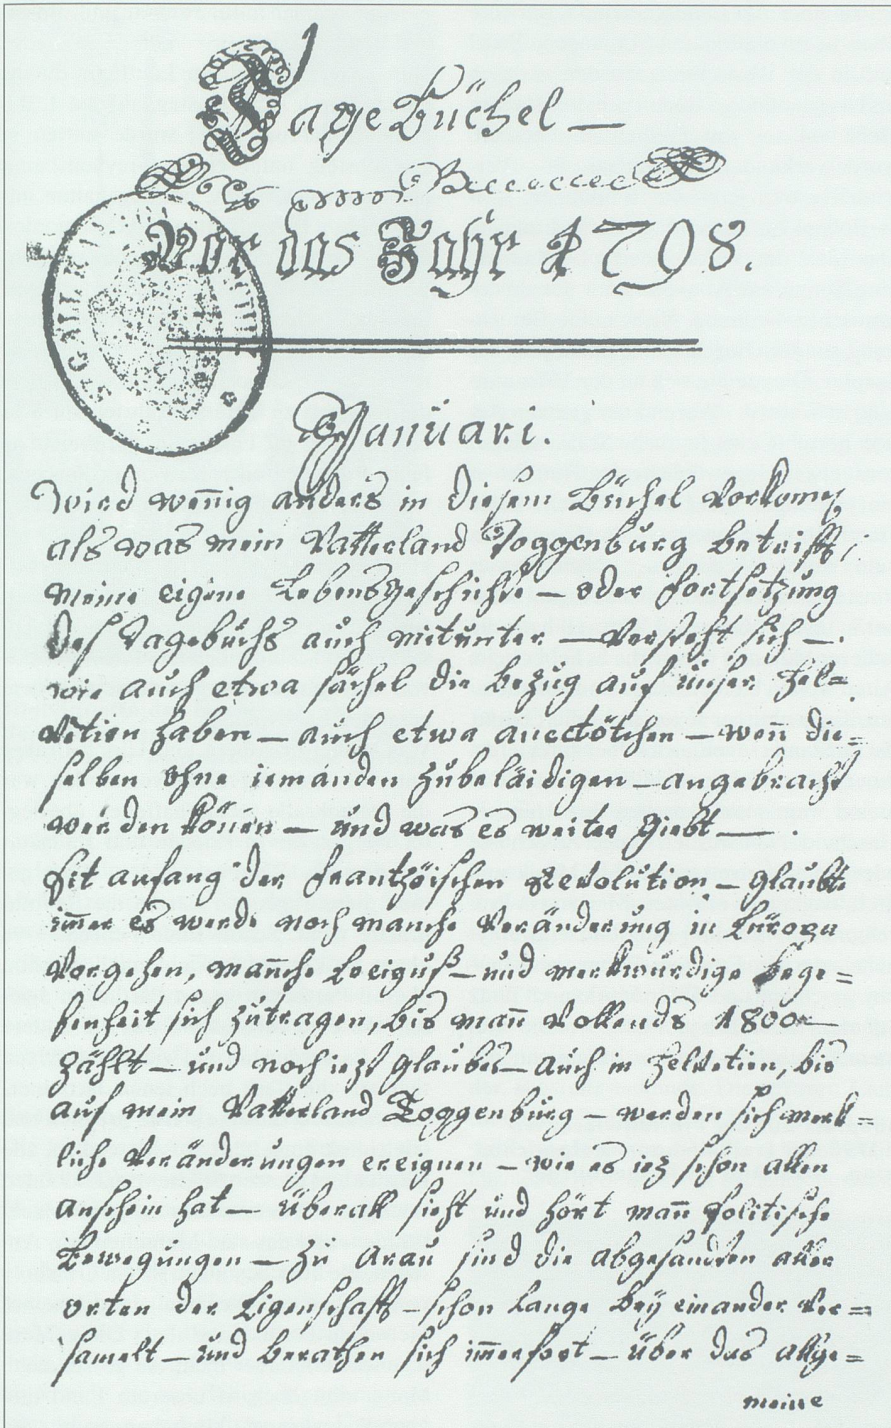 TageBüchel —
Vor das Jahr 1798.
St GALL
Januari.
wird wen̄ig anders in diesem Büchel Vorkomen
als was mein Vatterland Toggenburg betrifft,
meine eigene Lebensgeschichte — oder fortsetzung
des Tagebuchs auch mitunter — versteht sich —.
wie auch etwa sächel die bezug auf unser Hel=
vetien haben — auch etwa anectötchen — wen̄ die=
selben ohne iemanden zubeläidigen — angebracht
werden kön̄en — und was es weiter giebt —.
sit anfang der frantzöischen Revolution — glaubte
im̄er es werde noch manche Veränderung in Europa
Vorgehen, man̄che — und merkwürdige bege=
benheit sich zutragen, bis man̄ Vollends 1800
zählt — und noch iezt glaubes — auch in Helvetien, bis
auf mein Vatterland Toggenburg — werden sich merk=
liche Veränderungen ereignen — wie es iez schon allen
anschein hat — überall sieht und hört man̄ politische
bewegungen — zu Arau sind die abgesandten aller
orten der Eigenschafft — schon lange beÿ einander Ver=
samelt — und berathen sich im̄erfort — über das allge=
meine